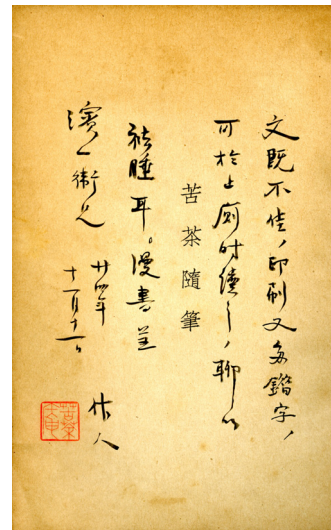 文既不佳，印刷又多錯字，
可於上廁時讀之，聊以
苦茶隨筆
祛睡耳。漫書呈
濱一衛兄
廿四年
十一月十一日
作人